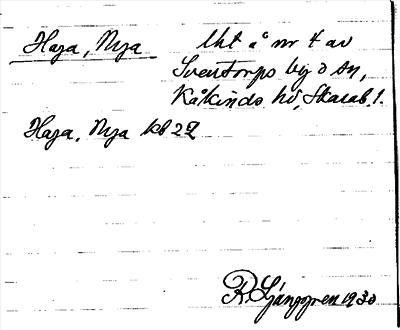 Haga, Nya   Lht å nr 4 av
Sventorps by o sn,
Kåkinds hd, Skarab. l.
Haga, Nya kb 22
R. Ljunggren 1930